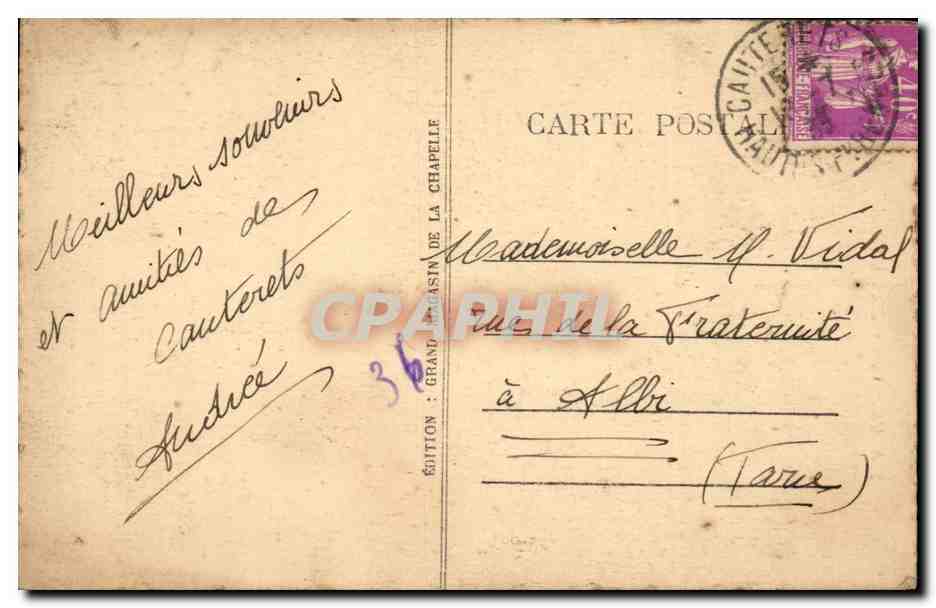 Meilleurs souvenirs
et amitiés de
Cauterets
Andrée
36
ÉDITION : GRAND MAGASIN DE LA CHAPELLE
CARTE POSTALE
CAUTERETS
HAUTES
Mademoiselle M. Vidal
rue de la Fraternité
à Albi
(Tarn)
CPAPHIL